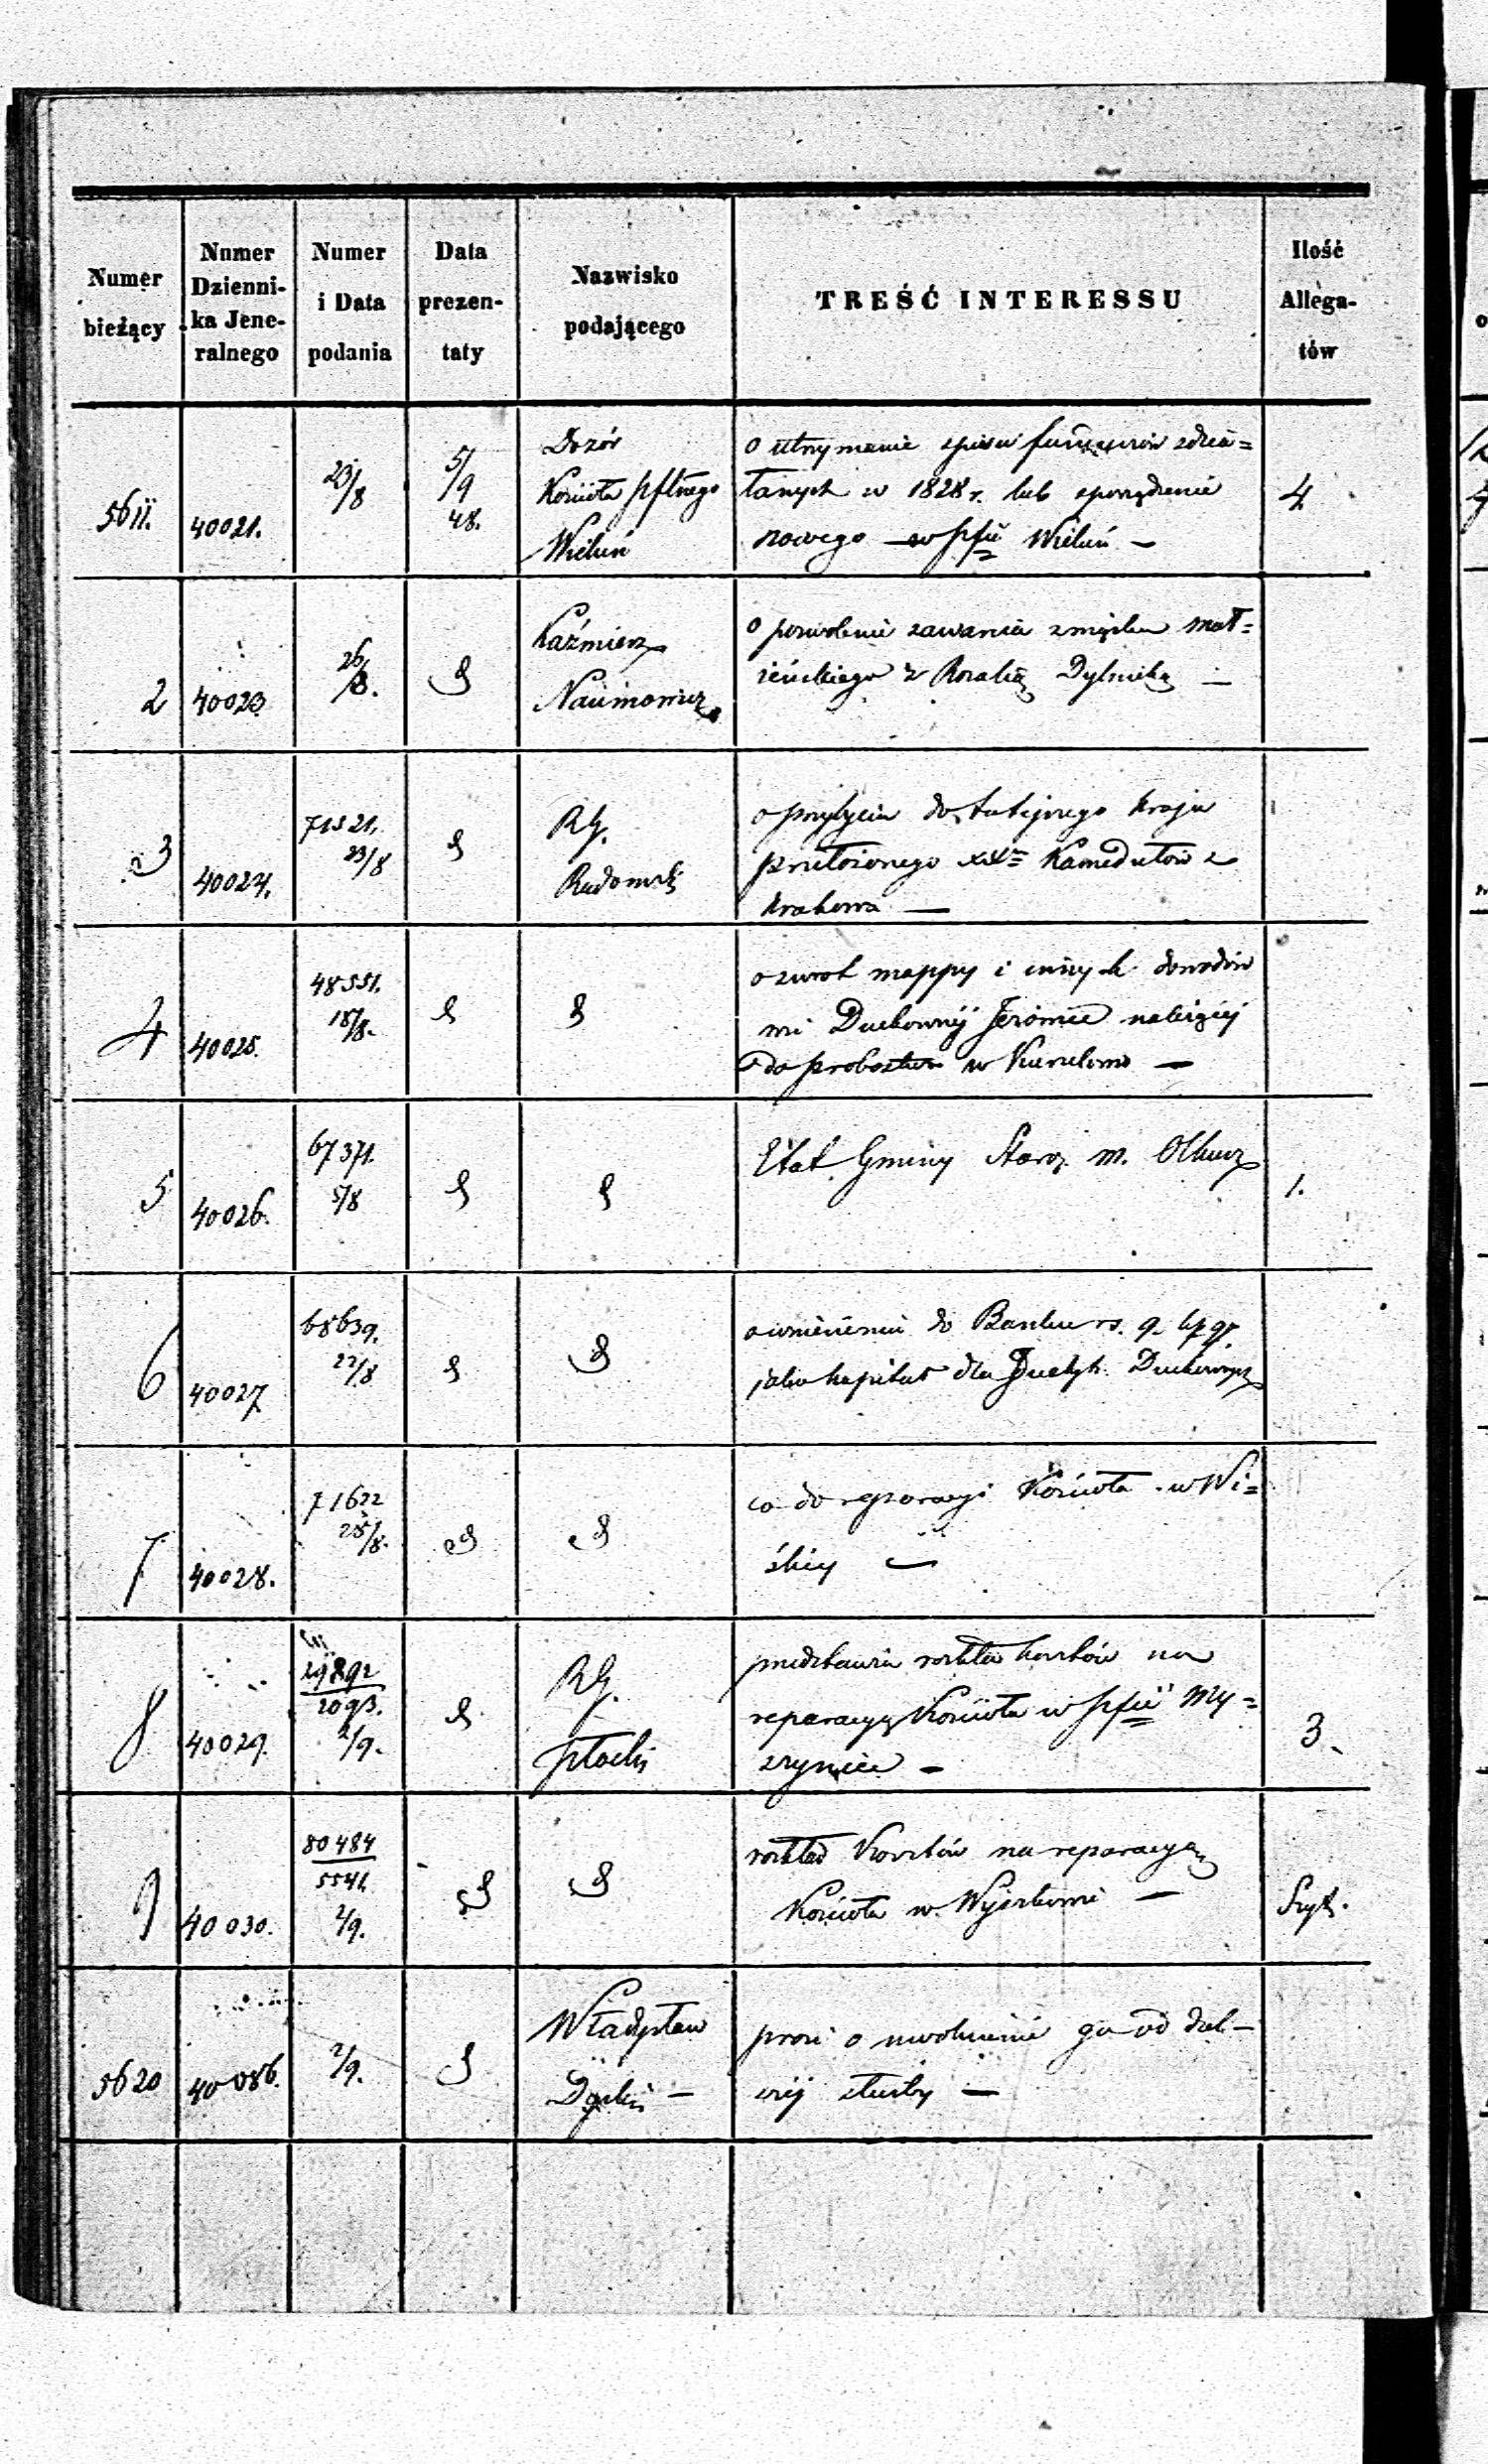 Numer bieżący
Numer Dzienni-ka Jene-ralnego
Numer i Data podania
Data prezen-taty
Nazwisko podającego
TREŚĆ INTERESSU
Ilość Allega-tów
5611. 40021. 23/8 5/9 48.
Dozór
Kościoła pftnego
Wieluń
o utrzymanie spisu funduszów zdzia=
łanych w 1828 r. lub sporządzenie
nowego w pfii Wieluń —
4
2 40023 26/8.
Kaźmierz
Naumowicz
o pozwolenie zawarcia związku mał=
żeńskiego z Rozalią —
3 40024. 71521. 23/8
RG.
Radomski
o przybyciu do tutejszego kraju
przełożonego Kamedułów z
Krakowa —
4 40025. 48551. 18/8.
o zwrot mappy i innych dowodów
do probostwa w —
5 40026. 67371. 5/8
Etat Gminy Staroz. m. Olkusz
1.
6 40027 68639. 22/8
o wniesieniu do Banku rs. 9
jako kapitał dla Duchownych
7 40028. 71622 25/8.
co do reparacyi Kościoła w Wi=
ślicy —
8 40029. 29892 2093. 2/9.
RG.
Płocki
przedstawia rozkład kosztów na
reparacyą Kościoła w pfii My=
szyniec —
3.
9 40030. 80484 5541. 2/9.
rozkład Kosztów na reparacyą
Kościoła w —
Szyt.
5620 40086. 2/9.
Władysław
prosi o uwolnienie go od dal-
szej służby —